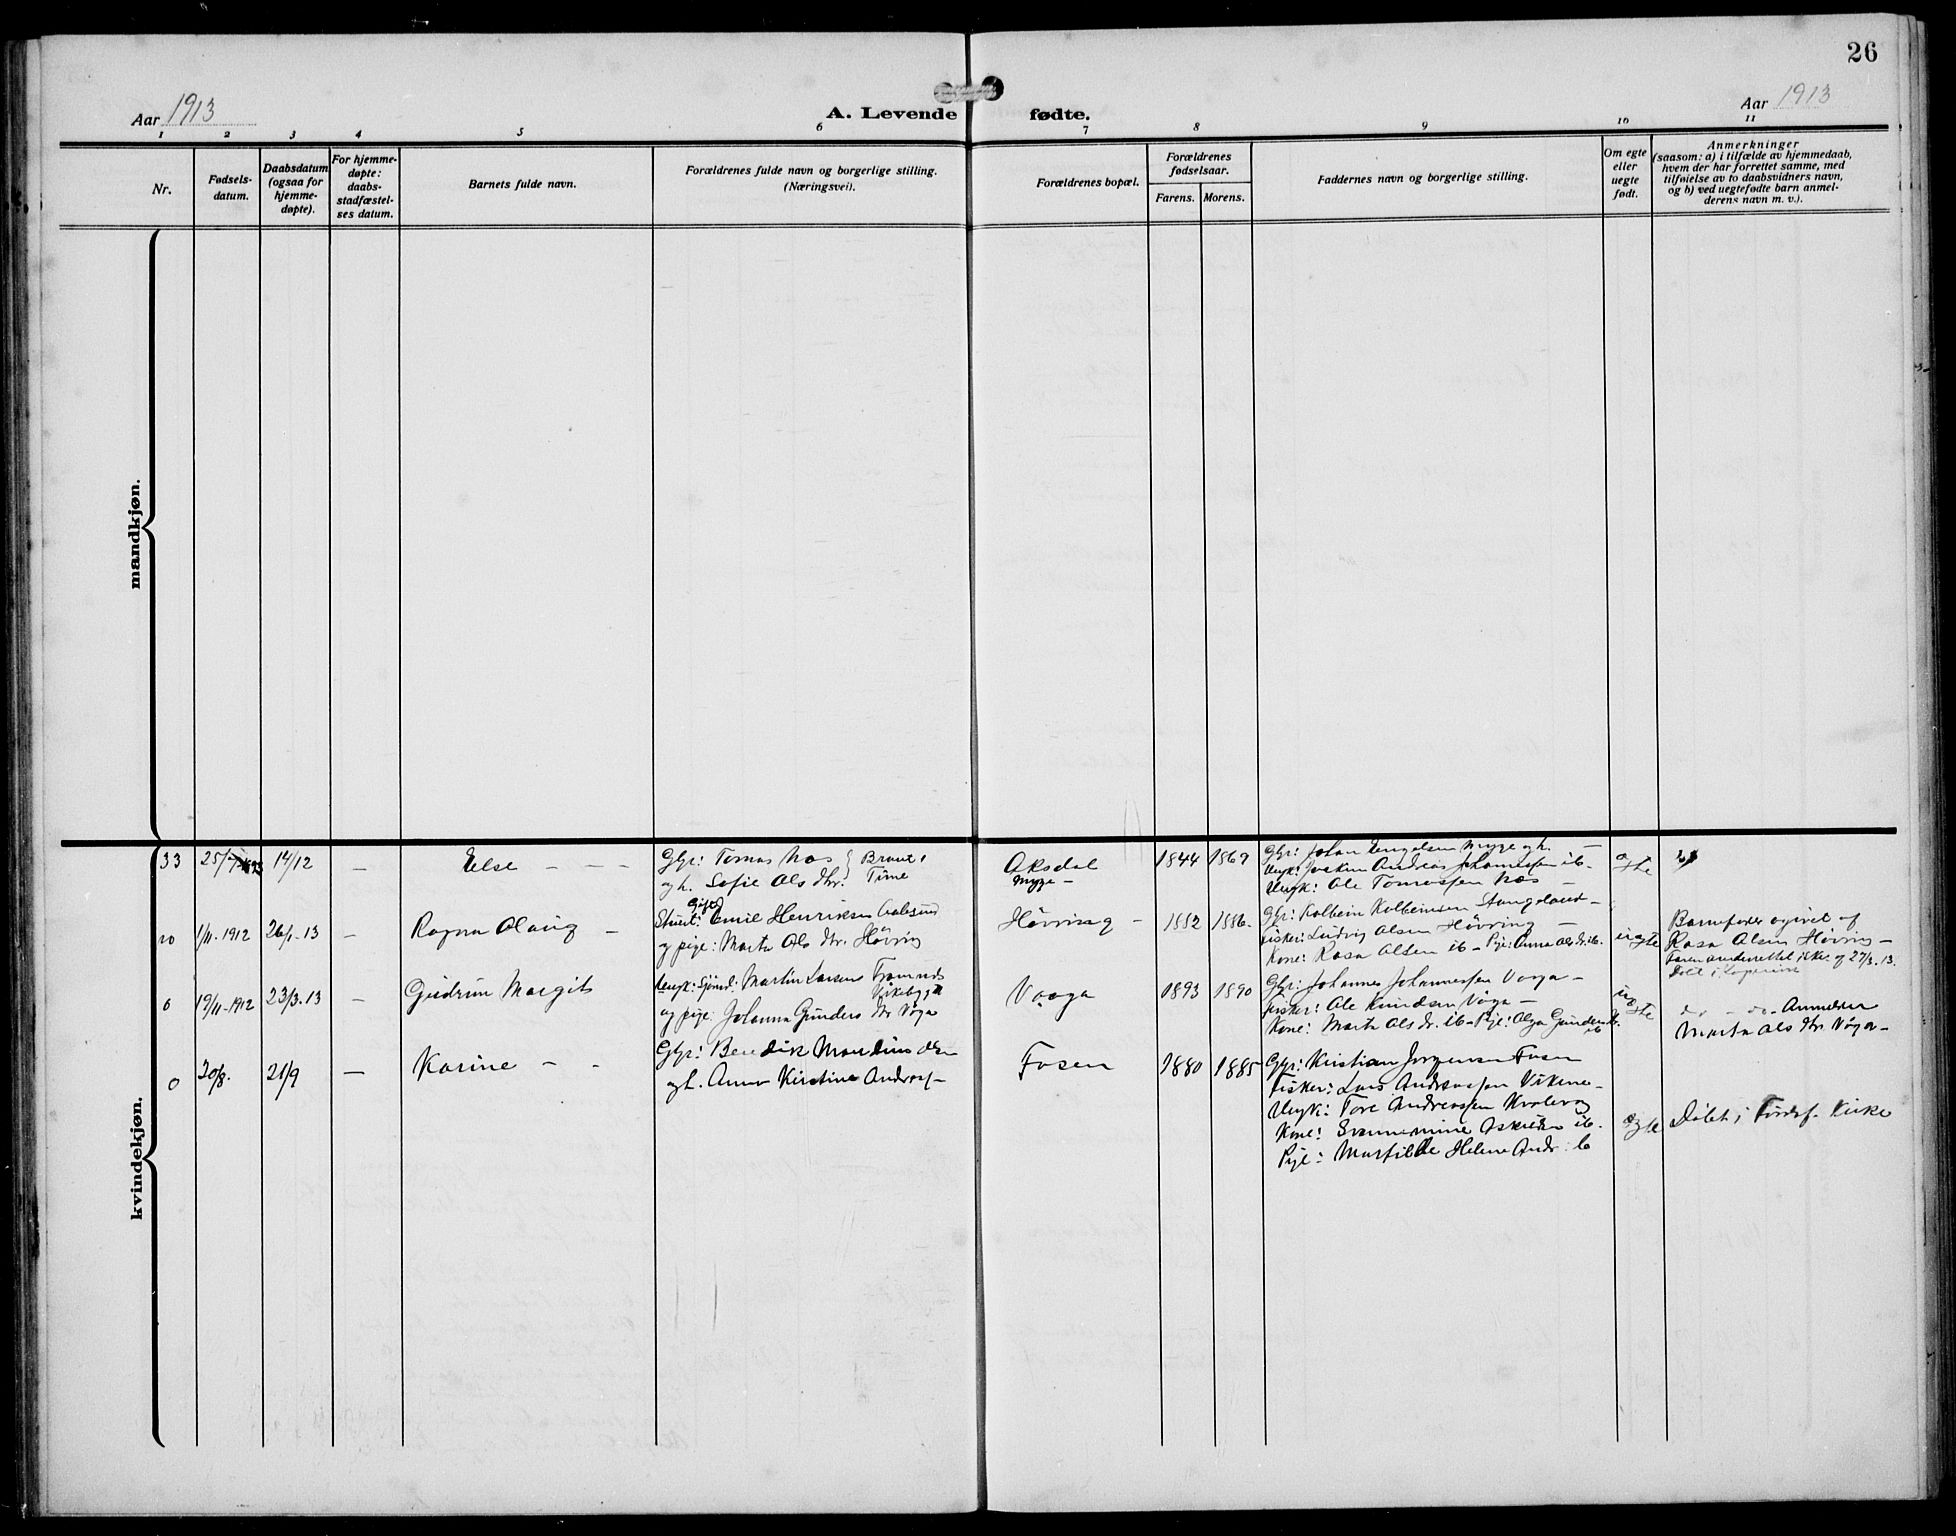 26
Aar 1913
A. Levende fødte.
Aar 1913
1 2 3 4 5 6 7 8 9 10 11
Nr.
Fødsels-
datum.
Daabsdatum
(ogsaa for
hjemme-
døpte).
For hjemme-
døpte:
daabs-
stadfæstel-
ses datum.
Barnets fulde navn.
Forældrenes fulde navn og borgerlige stilling.
(Næringsvei).
Forældrenes bopæl.
Forældrenes
fødselsaar.
Farens. Morens.
Faddernes navn og borgerlige stilling.
Om egte
eller
uegte
født.
Anmerkninger
(saasom: a) i tilfælde av hjemmedaab,
hvem der har forrettet samme, med
tilføielse av to daabsvidners navn,
og b) ved uegtefødte barn anmel-
derens navn m. v.).
mandkjøn.
kvindekjøn.
33 14/12 — Else — — —
Gbr: Tomas Næs
og h. Sofie Ols dtr.
Aksdal
Myge —
1844 1869
Gbr: Johan Myge og h. —
Ungk: Andreas Johannessen ib —
Ungk: Ole Tomassen Næs —
egte
1/11-1912 26/1-13 — Ragna Olaug —
Gift
Emil Henriksen Aalesund
og pige: Marta Ols dtr. Høvring
Høvring —
1852 1886.
Gbr: Kolbein Kolbeinsen Stangeland —
Fisker: Ludvig Olsen Høvring —
Kone: Rasa Olsen ib — Pije: Anna Ols dr. ib.
uegte
Barnefader opgivet af
Rasa Olsen Høvring —
Faren underrettet 27/3.13.
0 19/11-1912 23/3.13 Gudrun Margit
Ungk: Sjømd: Martin Larsen
Vikebygd
og pige: Johanna Gunders dtr Våga
Vaaga
1893 1890
Gbr: Johannes Johannessen Vaaga —
Fisker: Ole Knudsen Våga —
Kone: Marta Ols dr. ib — Pije: Olga Gunders dr. ib
uegte
do — do — Anmelder
Marta Ols dtr Våga —
0 20/8. 21/9 — Karine — -
Gbr: Benedik Mandius
og h. Anna Kirstine Andreas —
Fosen
1880 1885
Gbr: Kristian Jørgensen Fosen
Fisker: Lars Andreassen Vikene —
Ungk: Tore Andreassen Kvalevog
Kone: ib.
Pije: Matilde Helene Andr. ib
egte
Døbt i Kirke